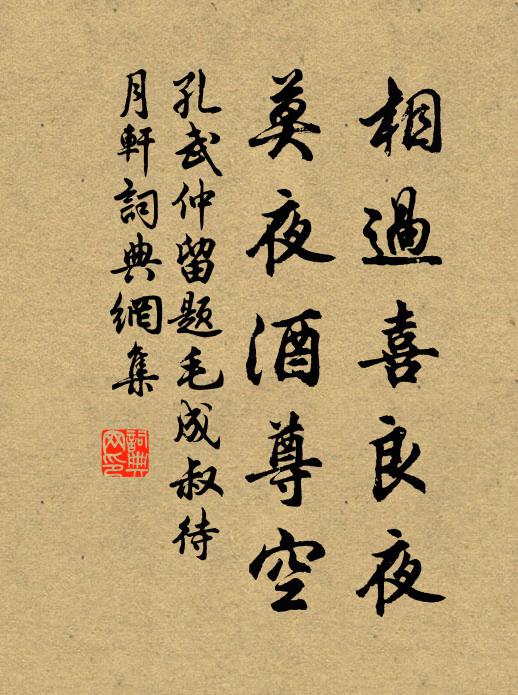 相過喜良夜
莫夜酒尊空
孔武仲留題毛成叔待
月軒詞典網集
詞典
网印